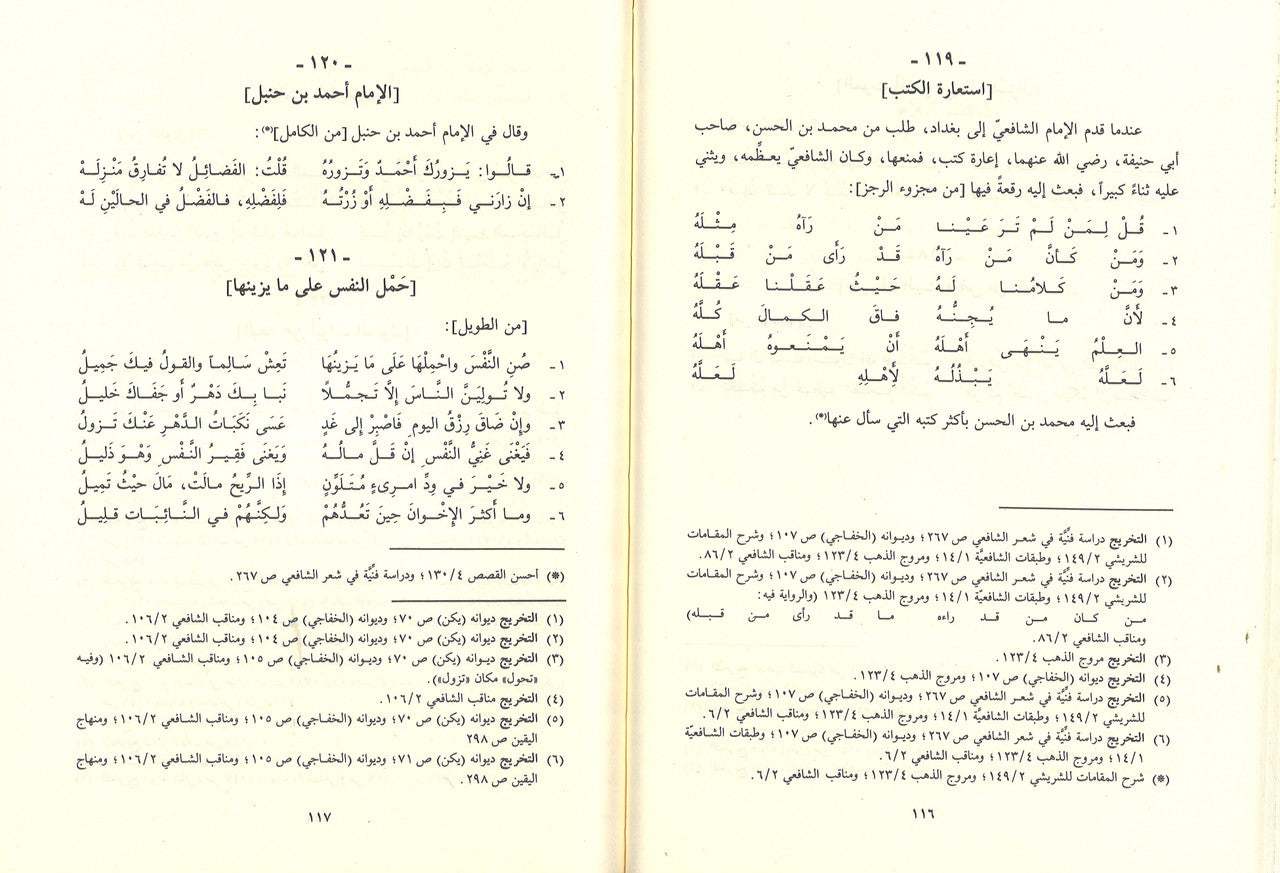 - ١١٩ -
[استعارة الكتب]
عندما قدم الإمام الشافعيّ إلى بغداد، طلب من محمد بن الحسن، صاحب
أبي حنيفة، رضي الله عنهما، إعارة كتب، فمنعها، وكان الشافعيّ يعظِّمه، ويثني
عليه ثناءً كبيراً، فبعث إليه رقعةً فيها [من مجزوء الرجز]:
١ـ قُلْ لِمَنْ لَمْ تَرَ عَيْنا مَنْ رَآهُ مِثْلَهُ
٢ـ وَمَنْ كَأنَّ مَنْ رَآهُ قَدْ رَأى مَنْ قَبْلَهُ
٣ـ وَمَنْ كَلامُنا لَهُ حَيْثُ عَقَلْنا عَقْلَهُ
٤ـ لأَنَّ ما يُجِنُّهُ فاقَ الكمالَ كُلَّهُ
٥ـ العِلْمُ يَنْهَى أَهْلَهُ أَنْ يَمْنَعوهُ أَهْلَهُ
٦ـ لَعَلَّهُ يَبْذُلُهُ لأِهْلِهِ لَعَلَّهُ
فبعث إليه محمد بن الحسن بأكثر كتبه التي سأل عنها(*).
(١) التخريج دراسة فنِّيَّة في شعر الشافعي ص ٢٦٧؛ وديوانه (الخفاجي) ص ١٠٧؛ وشرح المقامات
للشريشي ١٤٩/٢؛ وطبقات الشافعيَّة ١٤/١؛ ومروج الذهب ١٢٣/٤؛ ومناقب الشافعي ٨٦/٢.
(٢) التخريج دراسة فنِّيَّة في شعر الشافعي ص ٢٦٧؛ وديوانه (الخفاجي) ص ١٠٧؛ وشرح المقامات
للشريشي ١٤٩/٢؛ وطبقات الشافعيّة ١٤/١؛ ومروج الذهب ١٢٣/٤ (والرواية فيه:
من كان من قد راءه ما قد رأى من قبله)
ومناقب الشافعي ٨٦/٢.
(٣) التخريج مروج الذهب ١٢٣/٤.
(٤) التخريج ديوانه (الخفاجي) ص ١٠٧؛ ومروج الذهب ١٢٣/٤.
(٥) التخريج دراسة فنِّيَّة في شعر الشافعي ص ٢٦٧؛ وديوانه (الخفاجي) ص ١٠٧؛ وشرح المقامات
للشريشي ١٤٩/٢؛ وطبقات الشافعيَّة ١٤/١؛ ومروج الذهب ١٢٣/٤؛ ومناقب الشافعي ٦/٢.
(٦) التخريج دراسة فنِّيَّة في شعر الشافعي ص ٢٦٧؛ وديوانه (الخفاجي) ص ١٠٧؛ وطبقات الشافعيّة
١٤/١؛ ومروج الذهب ١٢٣/٤؛ ومناقب الشافعي ٦/٢.
(*) شرح المقامات للشريشي ١٤٩/٢؛ ومروج الذهب ١٢٣/٤؛ ومناقب الشافعي ٦/٢.
١١٦
- ١٢٠ -
[الإمام أحمد بن حنبل]
وقال في الإمام أحمد بن حنبل [من الكامل](*):
١ـ قالُوا: يَزورُكَ أَحْمَدٌ وَتَزورُهُ قُلْتُ: الفَضائِلُ لا تُفارِقُ مَنْزِلَهْ
٢ـ إنْ زارَني فَبِفَضْلِهِ أَوْ زُرْتُهُ فَلِفَضْلِهِ، فالفَضْلُ في الحالَيْنِ لَهْ
- ١٢١ -
[حَمْل النفس على ما يزينها]
[من الطويل]:
١ـ صُنِ النَّفْسَ وَاحْمِلْهَا عَلَى مَا يَزينُهَا تَعِشْ سَالِماً والقولُ فيكَ جَميلُ
٢ـ ولا تُولِيَنَّ النَّاسَ إلَّا تَجمُّلاً نَبا بِكَ دَهْرٌ أَو جَفَاكَ خَليلُ
٣ـ وإنْ ضَاقَ رِزْقُ اليومِ فَاصْبِرْ إلى غَدٍ عَسَى نَكَبَاتُ الدَّهْرِ عَنْكَ تَزولُ
٤ـ فَيَغْنَى غَنِيُّ النَّفْسِ إنْ قَلَّ مالُهُ وَيَغنَى فَقِيرُ النَّفْسِ وَهْوَ ذَليلُ
٥ـ ولا خَيْرَ في وِدِّ امرِىءٍ مُتَلَوِّنٍ إِذَا الرِّيحُ مالَتْ، مَالَ حيْثُ تَمِيلُ
٦ـ وما أَكثرَ الإِخْوانَ حِينَ تَعُدُّهُمْ وَلكِنَّهُمْ في النَّائِبَات قليلُ
(*) أحسن القصص ١٣٠/٤؛ ودراسة فنِّيَّة في شعر الشافعي ص ٢٦٧.
(١) التخريج ديوانه (يكن) ص ٧٠؛ وديوانه (الخفاجي) ص ١٠٤؛ ومناقب الشافعي ١٠٦/٢.
(٢) التخريج ديوانه (يكن) ص ٧٠؛ وديوانه (الخفاجي) ص ١٠٤؛ ومناقب الشافعي ١٠٦/٢.
(٣) التخريج ديوانه (يكن) ص ٧٠؛ وديوانه (الخفاجي) ص ١٠٥؛ ومناقب الشافعي ١٠٦/٢ (وفيه
«تحول» مكان «تزول»).
(٤) التخريج مناقب الشافعي ١٠٦/٢.
(٥) التخريج ديوانه (يكن) ص ٧٠؛ وديوانه (الخفاجي) ص ١٠٥؛ ومناقب الشافعي ١١٦/٢؛ ومنهاج
اليقين ص ٢٩٨
(٦) التخريج ديوانه (يكن) ص ٧١؛ وديوانه (الخفاجي) ص ١٠٥؛ ومناقب الشافعي ١٠٦/٢؛ ومنهاج
اليقين ص ٢٩٨.
١١٧